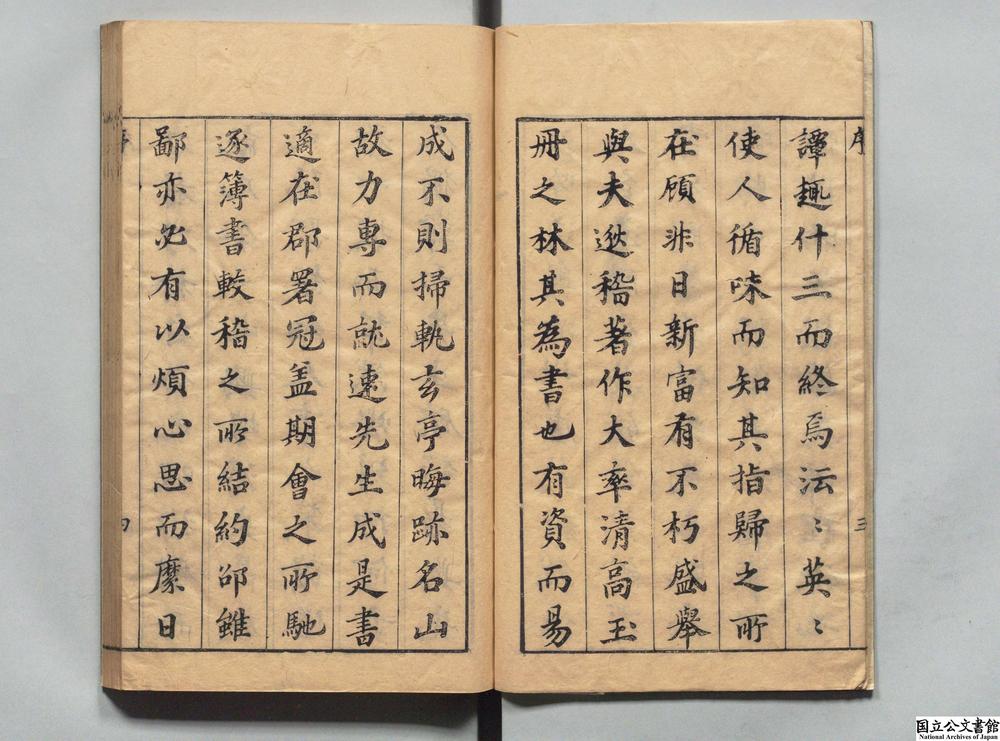 序
三
譚趣什三而終焉沄〻英〻
使人循味而知其指歸之所
在頋非日新富有不朽盛舉
與夫逖稽著作大率清高玉
冊之林其為書也有資而易
成不則掃軌玄亭晦跡名山
故力專而就速先生成是書
適在郡署冠盖期會之所馳
逐簿書較稽之所結約邵雖
鄙亦必有以煩心思而縻日
四
国立公文書館
National Archives of Japan